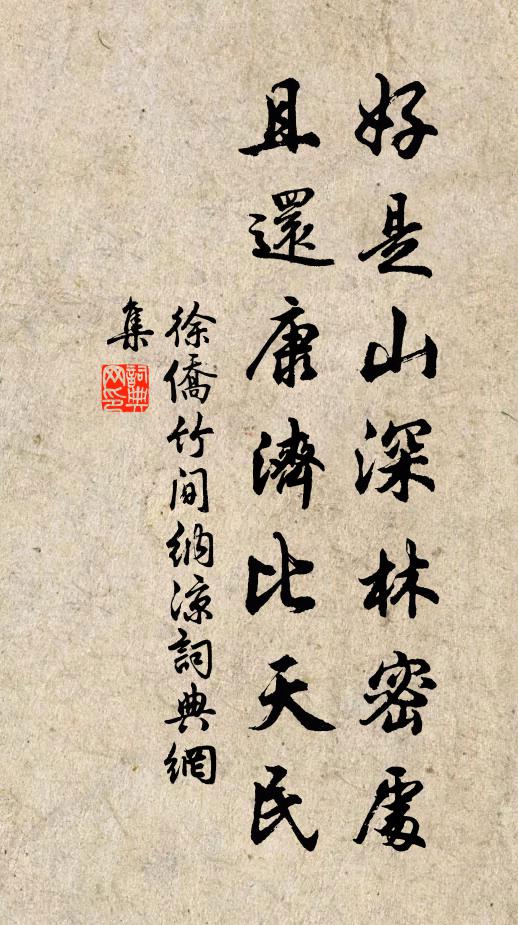 好是山深林密處
且還康濟比天民
徐僑竹間納凉詞典網
集
詞典网印